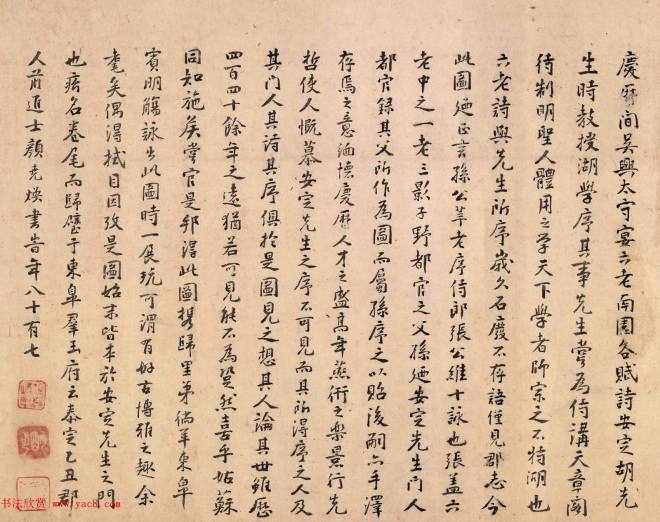 慶曆間吳興太守宴六老南園各賦詩安定胡先
生時教授湖學序其事先生嘗為侍講天章閣
待制明聖人體用之學天下學者師宗之不特湖也
六老詩與先生所序歲久石廢不存語僅見郡志今
此圖廼正言孫公羊老序侍郎張公維十詠也張蓋六
老中之一老三影子野都官之父孫廼安定先生門人
都官錄其父所作為圖而屬孫序之以貽後嗣亦手澤
存焉之意緬懷慶曆人才之盛高年燕衎之樂景行先
哲使人慨慕安定先生之序不可見而其所得序之人及
其門人其詩其序俱於是圖見之想其人論其世雖歷
四百四十餘年之遠猶若可見能不為跫然喜乎姑蘇
同知施矦嘗官是邦得此圖携歸里第徜羊東皐
賓明觴詠出此圖時一展玩可謂有好古博雅之趣余
耄矣偶得拭目因攷是圖始末皆本於安定先生之門
也疥名卷尾而歸璧于東皐羣玉府云泰定乙丑郡
人前進士顏堯煥書旹年八十有七
书法欣赏
www.yac8.com